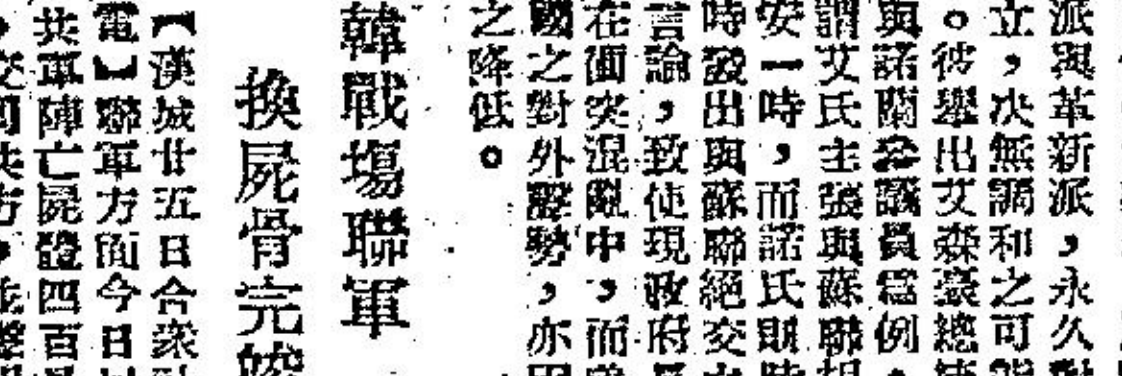 派與革新派，永久對
立，决無調和之可能
。彼舉出艾森豪總統
與諾蘭參議員爲例，
謂艾氏主張與蘇聯相
安一時，而諾氏則時
時發出與蘇聯絕交
言論，致使現政府
在衝突混亂中，而
國之對外聲勢，亦因
之降低。
韓戰場聯軍
換屍骨完竣
【漢城廿五日合衆社
電】聯軍方面今日以
共軍陣亡屍體四百
交回共方，並